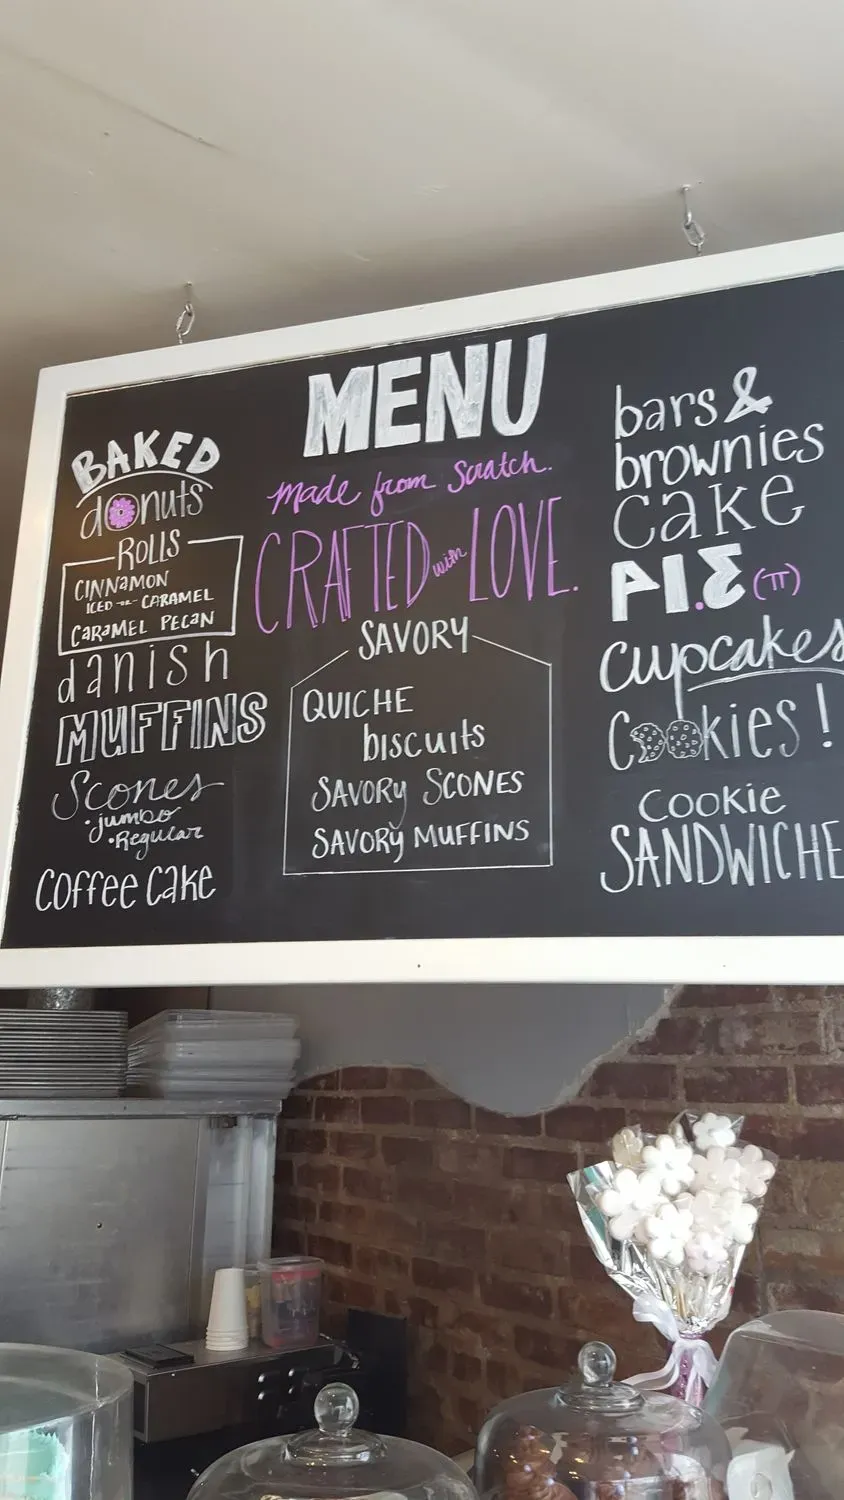 MENU
made from scratch.
CRAFTED with LOVE.
BAKED
donuts
ROLLS
CINNAMON
ICED -or- CARAMEL
CARAMEL PECAN
danish
MUFFINS
Scones
• jumbo
• Regular
coffee cake
SAVORY
QUICHE
biscuits
SAVORY SCONES
SAVORY MUFFINS
bars &
brownies
cake
PI.E (π)
cupcakes
Cookies!
COOKIE
SANDWICHE